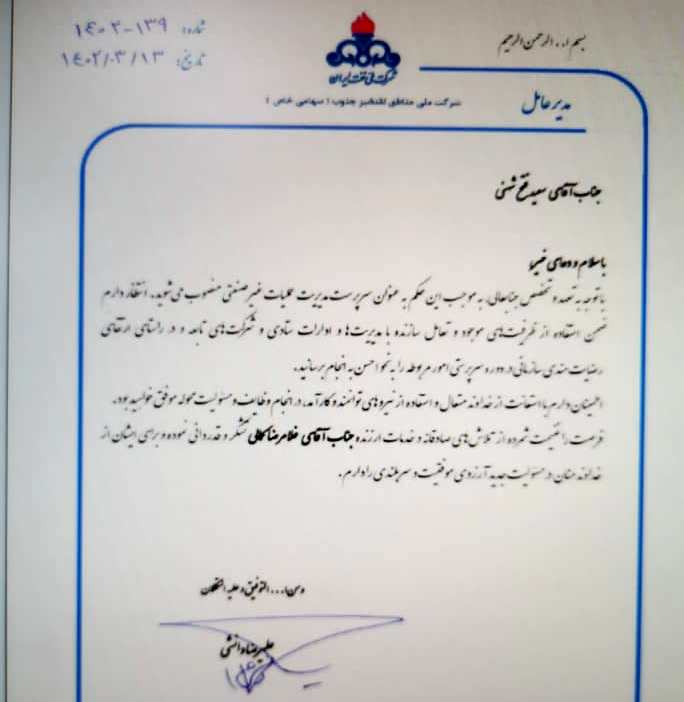 بسم ا... الرحمن الرحیم
شماره: ۱۳۹-۱۴۰۲
تاریخ: ۱۴۰۲/۰۳/۱۳
شرکت ملی نفت ایران
شرکت ملی مناطق نفتخیز جنوب (سهامی خاص)
مدیر عامل
جناب آقای سعید فتح شهنی
باسلام و دعای خیر؛
با توجه به تعهد و تخصص جنابعالی، به موجب این حکم به عنوان سرپرست مدیریت عملیات غیر صنعتی منصوب می شوید. انتظار دارم
ضمن استفاده از ظرفیت های موجود و تعامل سازنده با مدیریت ها و ادارات ستادی و شرکت های تابعه و در راستای ارتقای
رضایت مندی سازمانی در دوره سرپرستی امور مربوطه را به نحو احسن به انجام برسانید.
اطمینان دارم با استعانت از خداوند متعال و استفاده از نیروهای توانمند و کارآمد، در انجام وظایف و مسئولیت محوله موفق خواهید بود.
فرصت را غنیمت شمرده از تلاش های صادقانه و خدمات ارزنده جناب آقای غلامرضا کمالی تشکر و قدردانی نموده و برای ایشان از
خداوند منان در مسئولیت جدید آرزوی موفقیت و سربلندی را دارم.
ومن ا... التوفیق و علیه التکلان
علیرضا دانشی